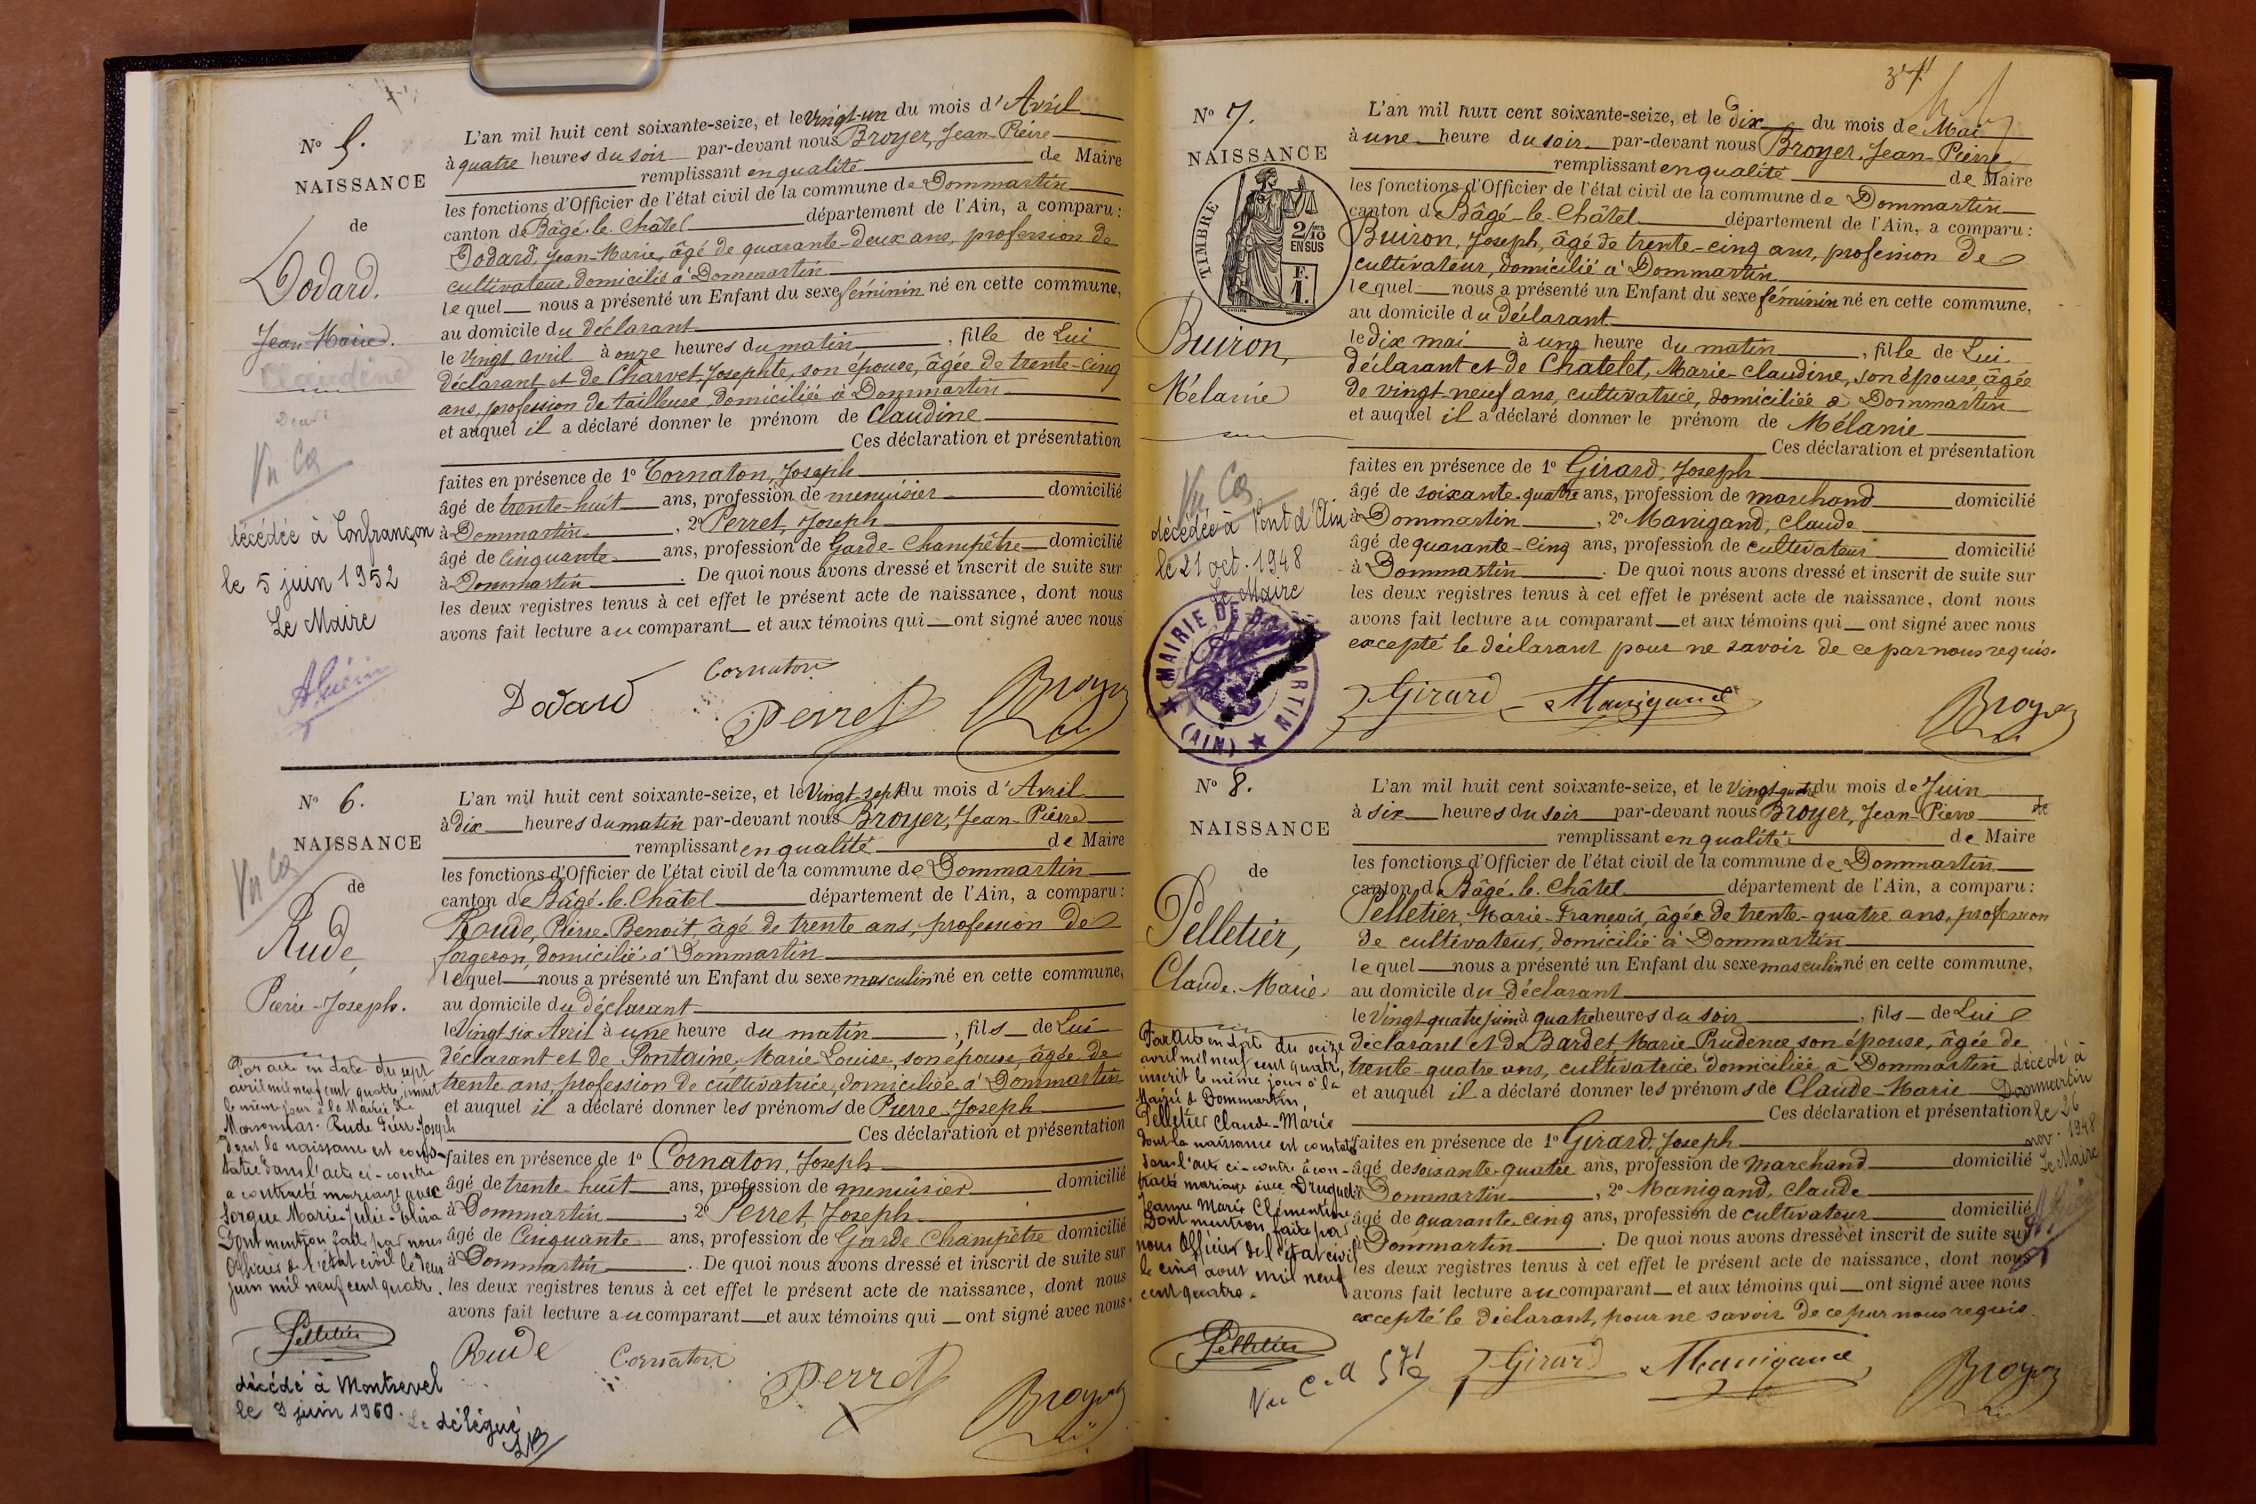 No 5.
NAISSANCE
de
Dodard.
Jean-Marie.
Claudine
Vu Ca
décédée à Confrançon
le 5 juin 1952
Le Maire
L'an mil huit cent soixante-seize, et le Vingt-un du mois d'Avril
à quatre heures du soir par-devant nous Broyer, Jean-Pierre
remplissant en qualité de Maire
les fonctions d'Officier de l'état civil de la commune de Dommartin
canton de Bâgé-le-Châtel département de l'Ain, a comparu:
Dodard, Jean-Marie, âgé de quarante-deux ans, profession de
cultivateur, domicilié à Dommartin
lequel nous a présenté un Enfant du sexe féminin né en cette commune,
au domicile du déclarant
le vingt avril à onze heures du matin, fille de Lui
déclarant et de Charvet, Josephte, son épouse, âgée de trente-cinq
ans, profession de tailleuse, domiciliée à Dommartin
et auquel il a déclaré donner le prénom de Claudine
Ces déclaration et présentation
faites en présence de 1o Cornaton, Joseph
âgé de trente-huit ans, profession de menuisier domicilié
à Dommartin, 2o Perret, Joseph
âgé de Cinquante ans, profession de Garde-Champêtre domicilié
à Dommartin. De quoi nous avons dressé et inscrit de suite sur
les deux registres tenus à cet effet le présent acte de naissance, dont nous
avons fait lecture au comparant et aux témoins qui ont signé avec nous
Dodard Cornaton Perret Broyer
No 6.
NAISSANCE
Vu Ca
de
Rude,
Pierre-Joseph.
Par acte en date du sept
avril mil neuf cent quatre, inscrit
le même jour à la Mairie de
Marsonnas. Rude Pierre Joseph
dont la naissance est cons-
tatée dans l'acte ci-contre
a contracté mariage avec
Marie-Julie-
Dont mention faite par nous
Officier de l'état civil le
juin mil neuf cent quatre.
Pelletier
décédé à Montrevel
le 9 juin 1960.
Le délégué
L'an mil huit cent soixante-seize, et le Vingt-sept du mois d'Avril
à dix heures du matin par-devant nous Broyer, Jean-Pierre
remplissant en qualité de Maire
les fonctions d'Officier de l'état civil de la commune de Dommartin
canton de Bâgé-le-Châtel département de l'Ain, a comparu:
Rude, Pierre-Benoît, âgé de trente ans, profession de
forgeron, domicilié à Dommartin
lequel nous a présenté un Enfant du sexe masculin né en cette commune,
au domicile du déclarant
le Vingt-six Avril à une heure du matin, fils de Lui
déclarant et de Pontaine, Marie-Louise, son épouse, âgée de
trente ans, profession de cultivatrice, domiciliée à Dommartin
et auquel il a déclaré donner les prénoms de Pierre-Joseph
Ces déclaration et présentation
faites en présence de 1o Cornaton, Joseph
âgé de trente-huit ans, profession de menuisier domicilié
à Dommartin, 2o Perret, Joseph
âgé de Cinquante ans, profession de Garde Champêtre domicilié
à Dommartin. De quoi nous avons dressé et inscrit de suite sur
les deux registres tenus à cet effet le présent acte de naissance, dont nous
avons fait lecture au comparant et aux témoins qui ont signé avec nous.
Rude Cornaton Perret Broyer
No 7.
NAISSANCE
TIMBRE
2/10
EN SUS
F.
1.
Buiron,
Mélanie
Vu Ca
décédée à Pont d'Ain
le 21 oct. 1948
Le Maire
MAIRIE DE DOMMARTIN
(AIN)
L'an mil huit cent soixante-seize, et le dix du mois de Mai
à une heure du soir par-devant nous Broyer, Jean-Pierre
remplissant en qualité de Maire
les fonctions d'Officier de l'état civil de la commune de Dommartin
canton de Bâgé-le-Châtel département de l'Ain, a comparu:
Buiron, Joseph, âgé de trente-cinq ans, profession de
cultivateur, domicilié à Dommartin
lequel nous a présenté un Enfant du sexe féminin né en cette commune,
au domicile du déclarant
le dix mai à une heure du matin, fille de Lui
déclarant et de Chatelet, Marie-Claudine, son épouse, âgée
de vingt-neuf ans, cultivatrice, domiciliée à Dommartin
et auquel il a déclaré donner le prénom de Mélanie
Ces déclaration et présentation
faites en présence de 1o Girard, Joseph
âgé de soixante-quatre ans, profession de marchand domicilié
à Dommartin, 2o Manigand, Claude
âgé de quarante-cinq ans, profession de cultivateur domicilié
à Dommartin. De quoi nous avons dressé et inscrit de suite sur
les deux registres tenus à cet effet le présent acte de naissance, dont nous
avons fait lecture au comparant et aux témoins qui ont signé avec nous
excepté le déclarant pour ne savoir de ce par nous requis.
Girard Manigand Broyer
No 8.
NAISSANCE
de
Pelletier,
Claude-Marie
Par acte en date du seize
avril mil neuf cent quatre,
inscrit le même jour à la
Mairie de Dommartin,
Pelletier Claude-Marie
dont la naissance est constatée
dans l'acte ci-contre a con-
tracté mariage avec Druguet
Jeanne Marie Clémentine
Dont mention faite par
nous Officier de l'état civil
le cinq août mil neuf
cent quatre.
Pelletier
L'an mil huit cent soixante-seize, et le Vingt-quatre du mois de Juin
à six heures du soir par-devant nous Broyer, Jean-Pierre
remplissant en qualité de Maire
les fonctions d'Officier de l'état civil de la commune de Dommartin
canton de Bâgé-le-Châtel département de l'Ain, a comparu:
Pelletier, Marie-François, âgé de trente-quatre ans, profession
de cultivateur, domicilié à Dommartin
lequel nous a présenté un Enfant du sexe masculin né en cette commune,
au domicile du déclarant
le Vingt-quatre juin à quatre heures du soir, fils de Lui
déclarant et de Bardet Marie-Prudence, son épouse, âgée de
trente-quatre ans, cultivatrice, domiciliée à Dommartin
et auquel il a déclaré donner les prénoms de Claude-Marie
Ces déclaration et présentation
faites en présence de 1o Girard, Joseph
âgé de soixante-quatre ans, profession de marchand domicilié
à Dommartin, 2o Manigand, Claude
âgé de quarante-cinq ans, profession de cultivateur domicilié
à Dommartin. De quoi nous avons dressé et inscrit de suite sur
les deux registres tenus à cet effet le présent acte de naissance, dont nous
avons fait lecture au comparant et aux témoins qui ont signé avec nous
excepté le déclarant, pour ne savoir de ce par nous requis.
décédé à
Dommartin
le 26
nov. 1948
Le Maire
Girard Manigand Broyer